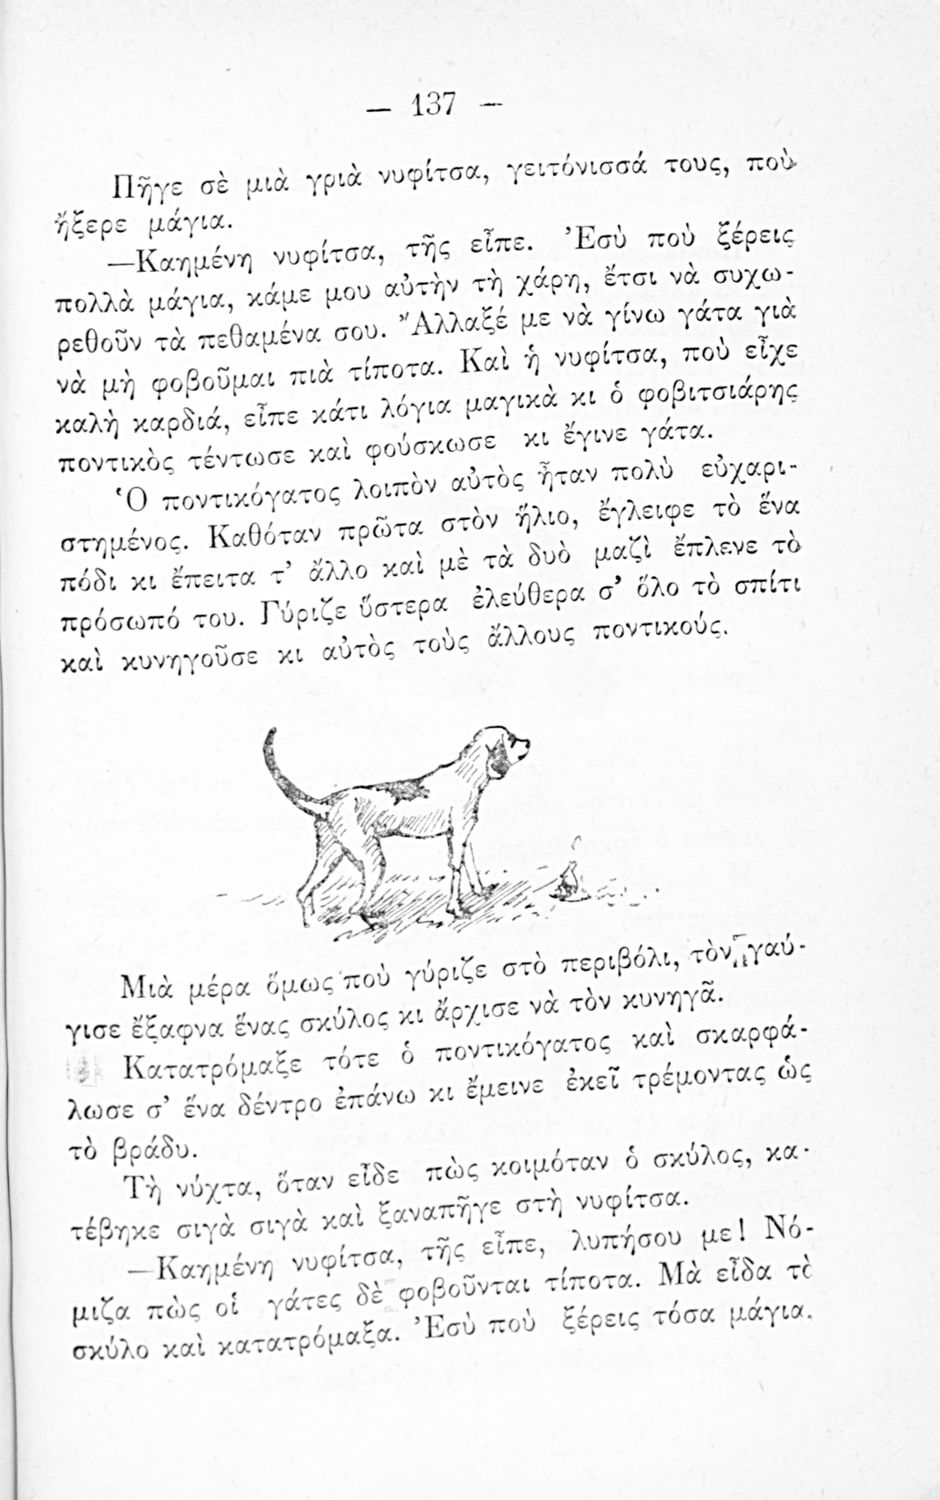 — 137 —
Πῆγε σὲ μιὰ γριὰ νυφίτσα, γειτόνισσά τους, ποὺ
ἤξερε μάγια.
—Καημένη νυφίτσα, τῆς εἶπε. Ἐσὺ ποὺ ξέρεις
πολλὰ μάγια, κάμε μου αὐτὴν τὴ χάρη, ἔτσι νὰ συχω-
ρεθοῦν τὰ πεθαμένα σου. Ἄλλαξέ με νὰ γίνω γάτα γιὰ
νὰ μὴ φοβοῦμαι πιὰ τίποτα. Καὶ ἡ νυφίτσα, ποὺ εἶχε
καλὴ καρδιά, εἶπε κάτι λόγια μαγικὰ κι ὁ φοβιτσιάρης
ποντικὸς τέντωσε καὶ φούσκωσε κι ἔγινε γάτα.
Ὁ ποντικόγατος λοιπὸν αὐτὸς ἦταν πολὺ εὐχαρι-
στημένος. Καθόταν πρῶτα στὸν ἥλιο, ἔγλειφε τὸ ἕνα
πόδι κι ἔπειτα τ' ἄλλο καὶ μὲ τὰ δυὸ μαζὶ ἔπλενε τὸ
πρόσωπό του. Γύριζε ὕστερα ἐλεύθερα σ' ὅλο τὸ σπίτι
καὶ κυνηγοῦσε κι αὐτὸς τοὺς ἄλλους ποντικούς.
Μιὰ μέρα ὅμως ποὺ γύριζε στὸ περιβόλι, τὸν γαύ-
γισε ἔξαφνα ἕνας σκύλος κι ἄρχισε νὰ τὸν κυνηγᾶ.
Κατατρόμαξε τότε ὁ ποντικόγατος καὶ σκαρφά-
λωσε σ' ἕνα δέντρο ἐπάνω κι ἔμεινε ἐκεῖ τρέμοντας ὡς
τὸ βράδυ.
Τὴ νύχτα, ὅταν εἶδε πὼς κοιμόταν ὁ σκύλος, κα-
τέβηκε σιγὰ σιγὰ καὶ ξαναπῆγε στὴ νυφίτσα.
—Καημένη νυφίτσα, τῆς εἶπε, λυπήσου με! Νό-
μιζα πὼς οἱ γάτες δὲ φοβοῦνται τίποτα. Μὰ εἶδα τὸ
σκύλο καὶ κατατρόμαξα. Ἐσὺ ποὺ ξέρεις τόσα μάγια.